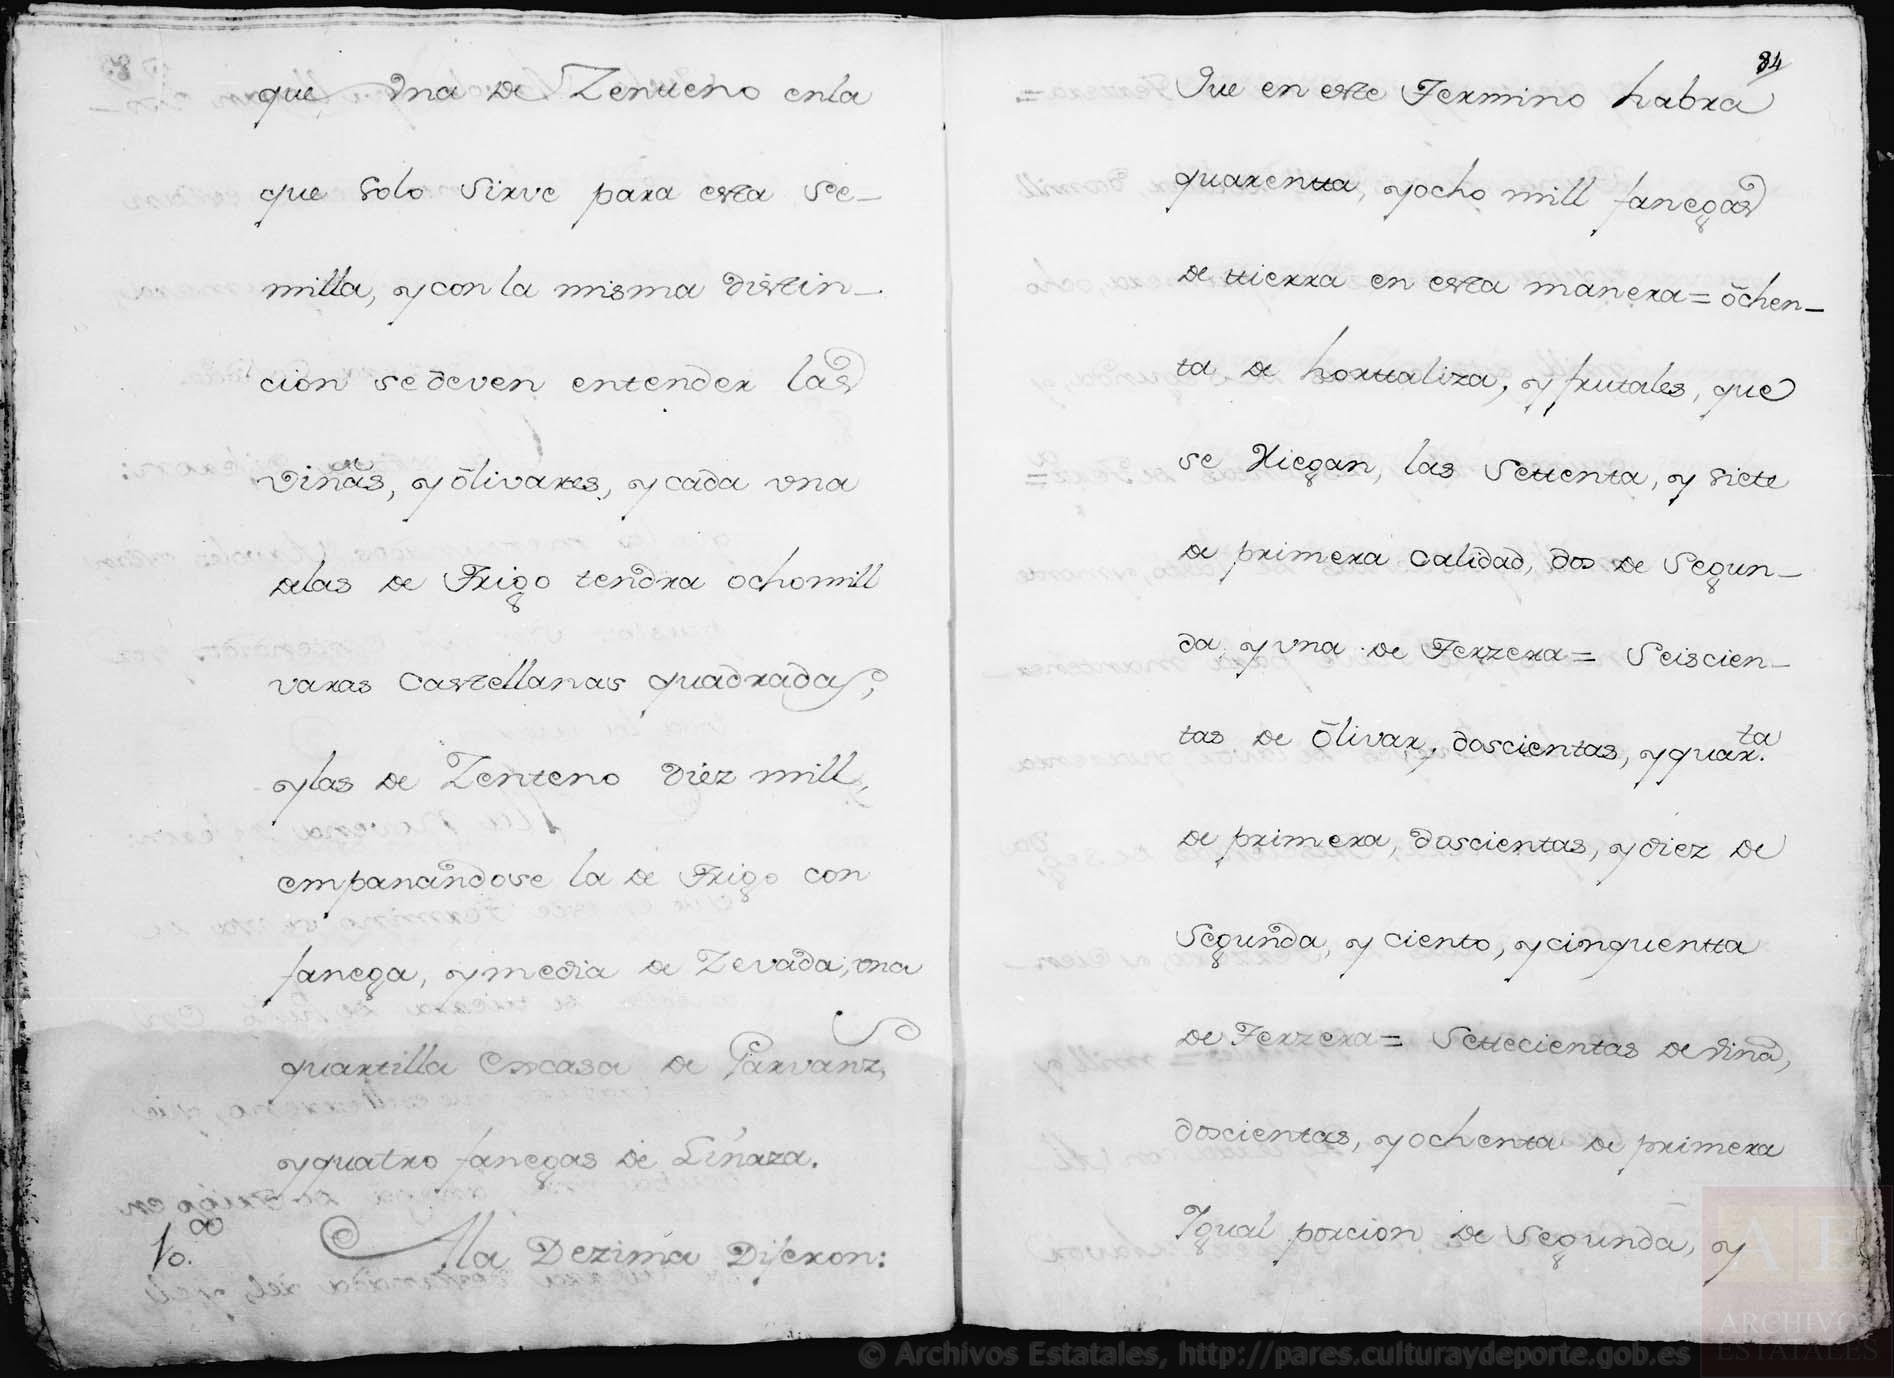 que Vna de Zentteno enla
que solo sirve para esta se-
milla, y con la misma distin-
cion se deven entender las
viñas, y olivares, y cada vna
delas de Trigo tendra ocho mill
varas Castellanas quadradas,
y las de Zenteno diez mill,
empanandose la de Trigo con
fanega, y media de Zevada, vna
quartilla escasa de Garvanz,
y quatro fanegas de Linaza.
10.ª Ala Dezima Dijeron:
84
Que en este Termino habra
quarentta, y ocho mill fanegas
de ttierra en esta manera = ochen-
ta de horttaliza, y frutales, que
se Riegan, las Settenta, y siete
de primera Calidad, dos de Segun-
da, y vna de Terzera = Seiscien-
tas de Olivar, doscientas, y quar.ta
de primera, doscientas, y diez de
Segunda, y ciento, y cinquentta
de Terzera = Settecientas de viña,
doscientas, y ochenta de primera
Ygual porcion de Segunda, y
© Archivos Estatales, http://pares.culturaydeporte.gob.es
AE
ARCHIVOS
ESTATALES